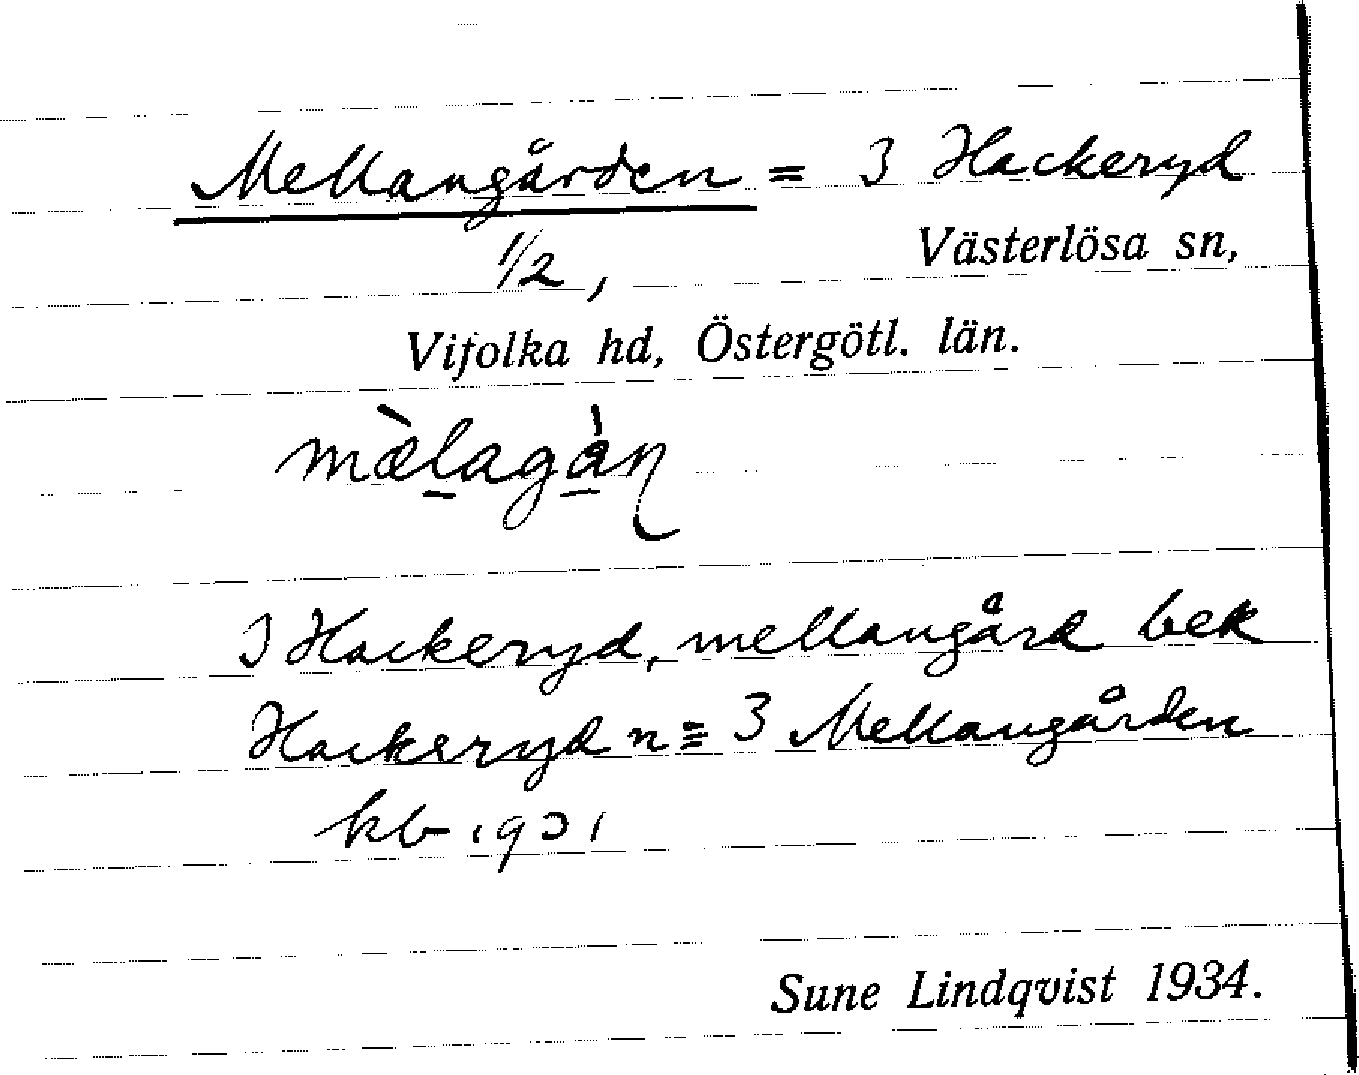 Mellangården = 3 Hackeryd
1/2, Västerlösa sn,
Vifolka hd, Östergötl. län.
mæ̀lagàn
3 Hackeryd, mellangård bek
Hackeryd n ≡ 3 Mellangården
kb 1931
Sune Lindqvist 1934.